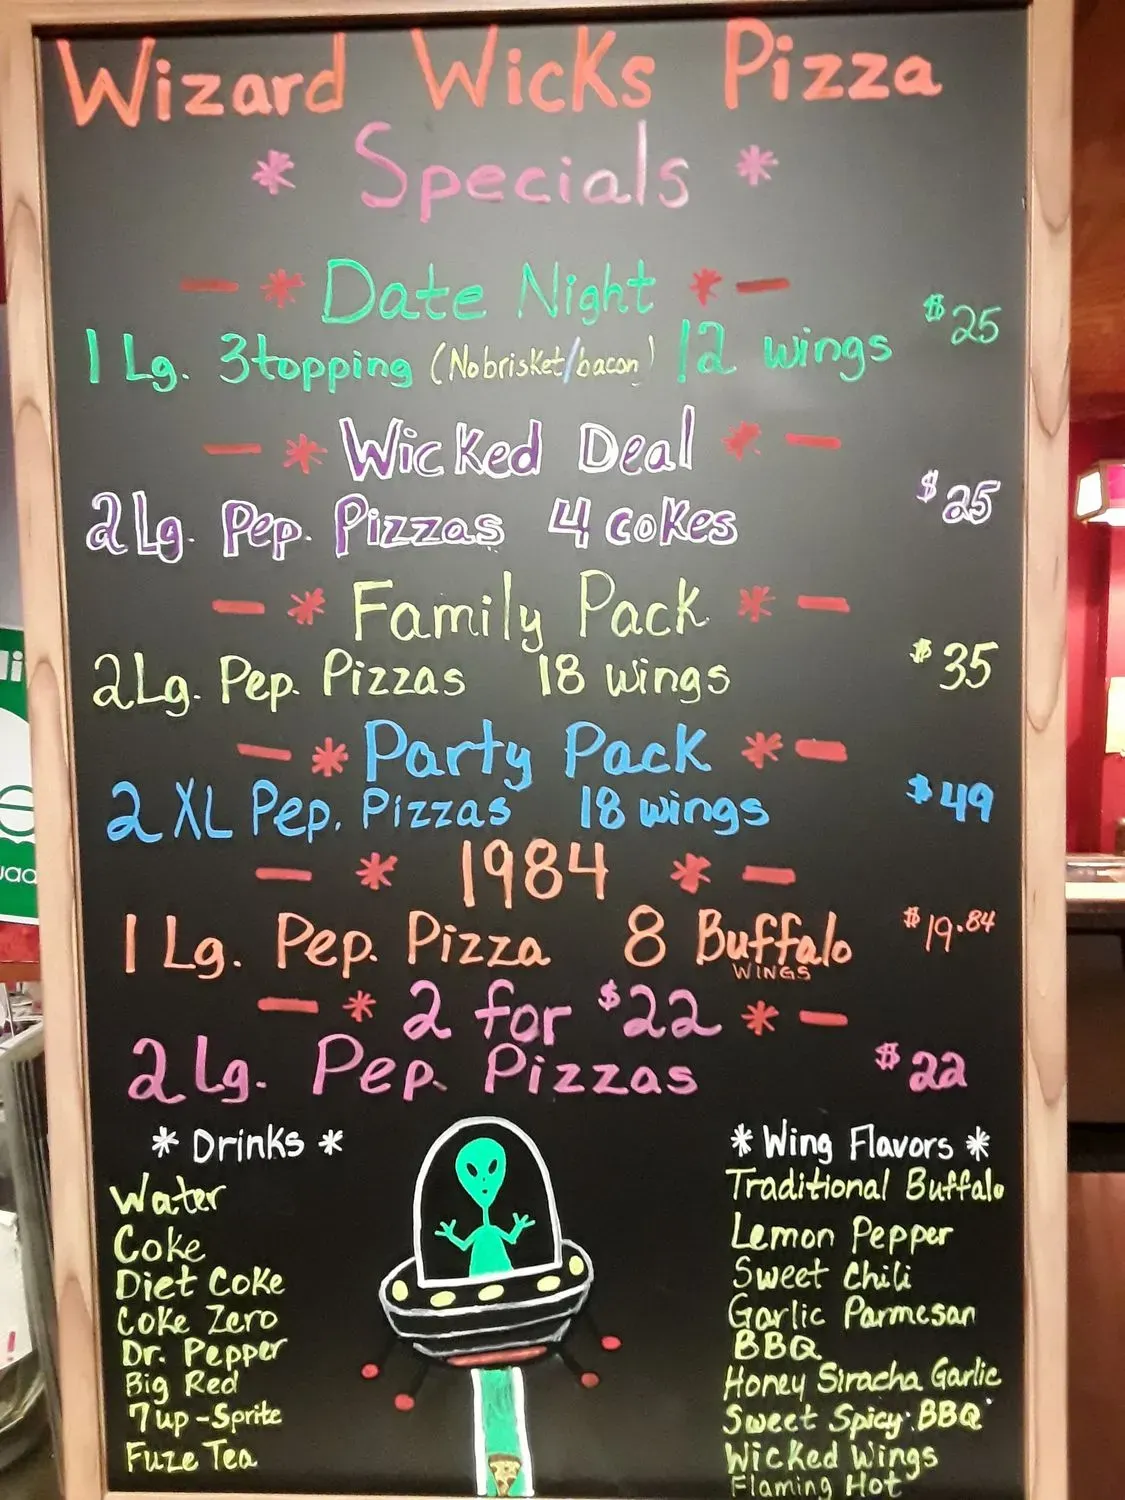 Wizard Wicks Pizza
* Specials *
- * Date Night * -
1 Lg. 3topping (No brisket/bacon) 12 wings $25
- * Wicked Deal * -
2 Lg. Pep. Pizzas 4 cokes $25
- * Family Pack * -
2 Lg. Pep. Pizzas 18 wings $35
- * Party Pack * -
2 XL Pep. Pizzas 18 wings $49
- * 1984 * -
1 Lg. Pep. Pizza 8 Buffalo $19.84
WINGS
- * 2 for $22 * -
2 Lg. Pep. Pizzas $22
* Drinks *
Water
Coke
Diet Coke
Coke Zero
Dr. Pepper
Big Red
7up - Sprite
Fuze Tea
* Wing Flavors *
Traditional Buffalo
Lemon Pepper
Sweet Chili
Garlic Parmesan
BBQ
Honey Siracha Garlic
Sweet Spicy BBQ
Wicked Wings
Flaming Hot